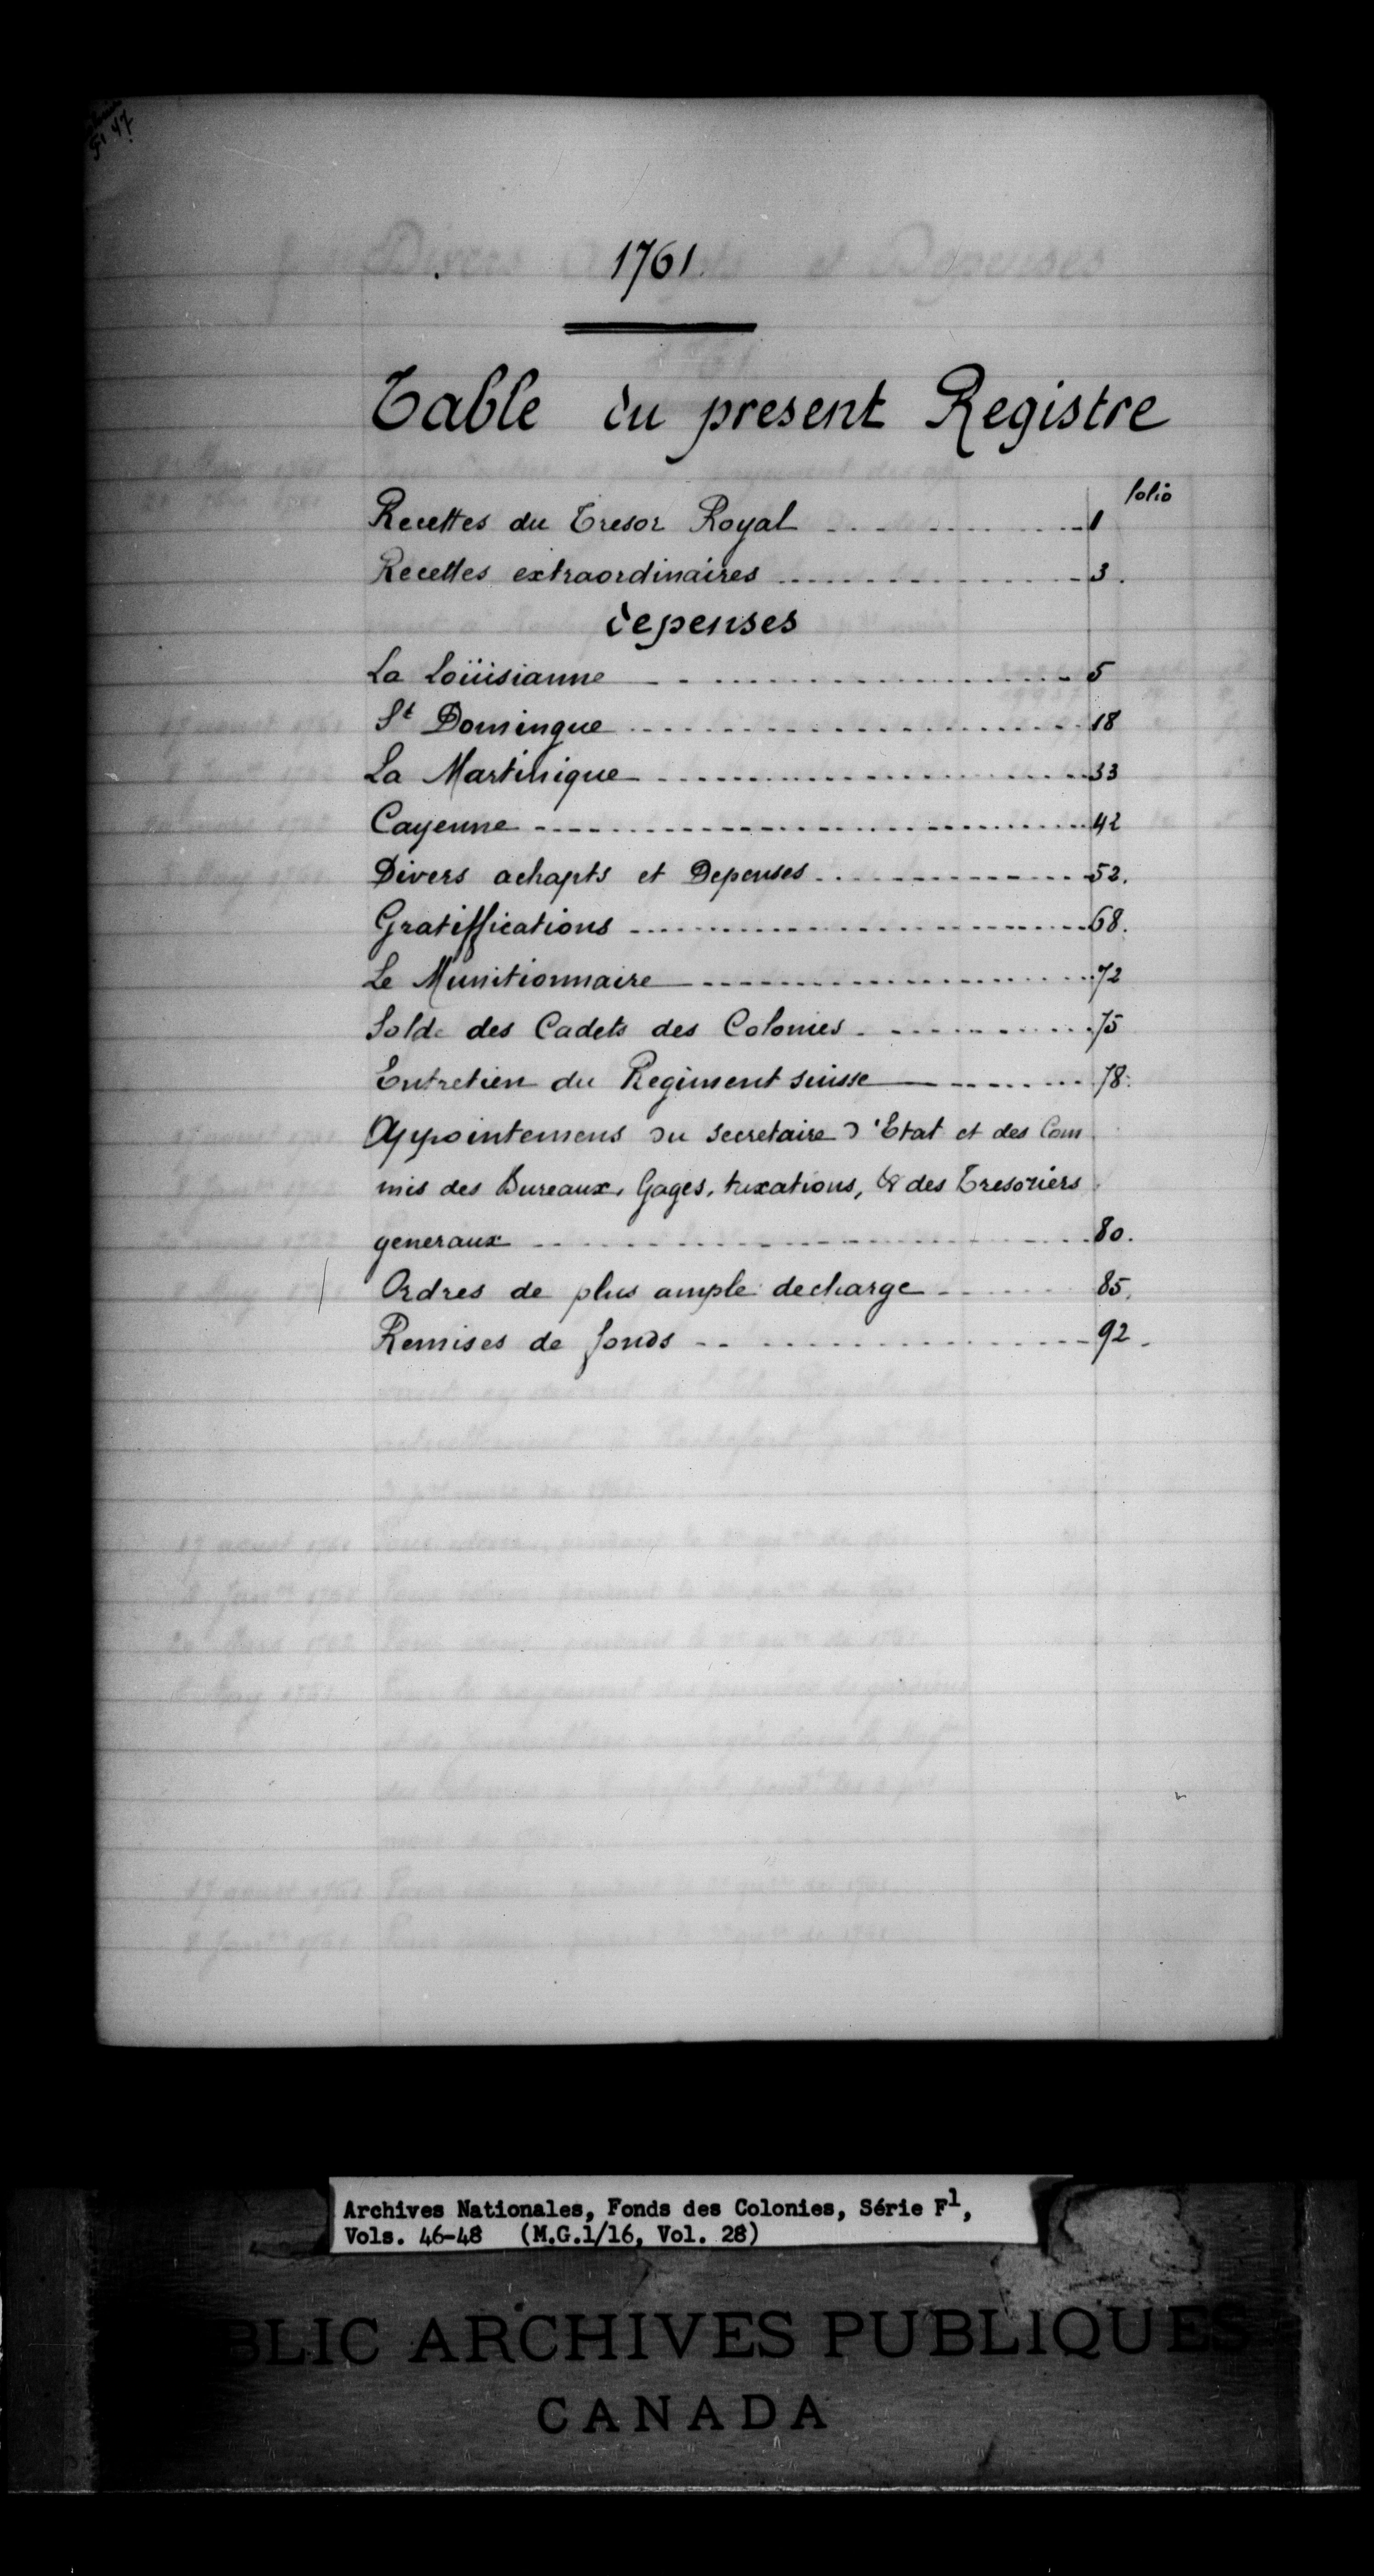 F1 47
1761.
Table du present Registre
folio
Recettes du Tresor Royal 1
Recettes extraordinaires 3.
depenses
La Loüisianne 5
St Domingue 18
La Martinique 33
Cayenne 42
Divers achapts et Depenses 52.
Gratiffications 68.
Le Munitionnaire 72
Solde des Cadets des Colonies 75
Entretien du Regiment suisse 78.
Appointemens du secretaire d'Etat et des Com
mis des Bureaux, Gages, taxations, & des Tresoriers
generaux 80.
Ordres de plus ample decharge 85.
Remises de fonds 92.
Archives Nationales, Fonds des Colonies, Série F1,
Vols. 46-48 (M.G.1/16, Vol. 28)
BLIC ARCHIVES PUBLIQUES
CANADA